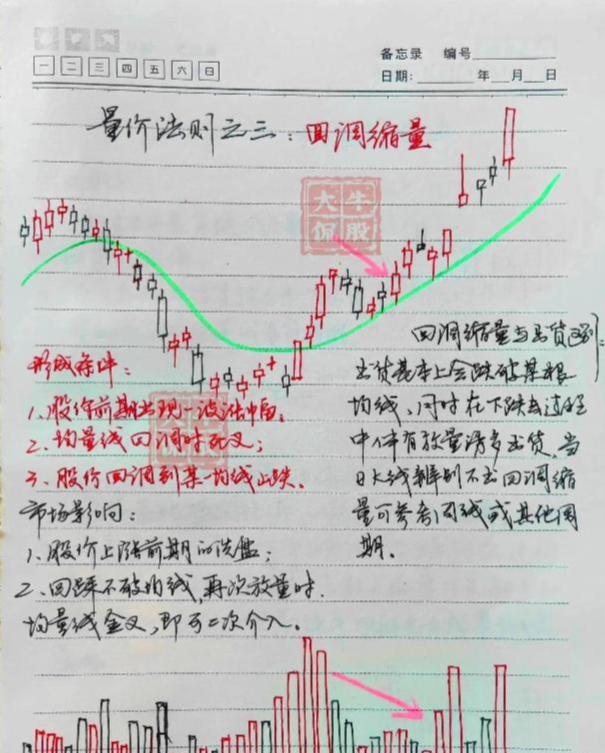 备忘录 编号
一 二 三 四 五 六 日
日期: 年 月 日
量价法则之三：回调缩量
大牛
侃股
回调缩量与出货区别：
形成条件：
出货基本上会跌破某根
1、股价前期出现一波涨幅。
均线、同时在下跌过程
2、均量线回调时死叉；
中伴有放量诱多出货。当
3、股价回调到某一均线止跌。
日K线辨别不出回调缩
市场影响：
量可参考周线或其他周
期。
1、股价上涨前期的洗盘；
2、回踩不破均线，再次放量时.
均量线金叉，即可二次介入。